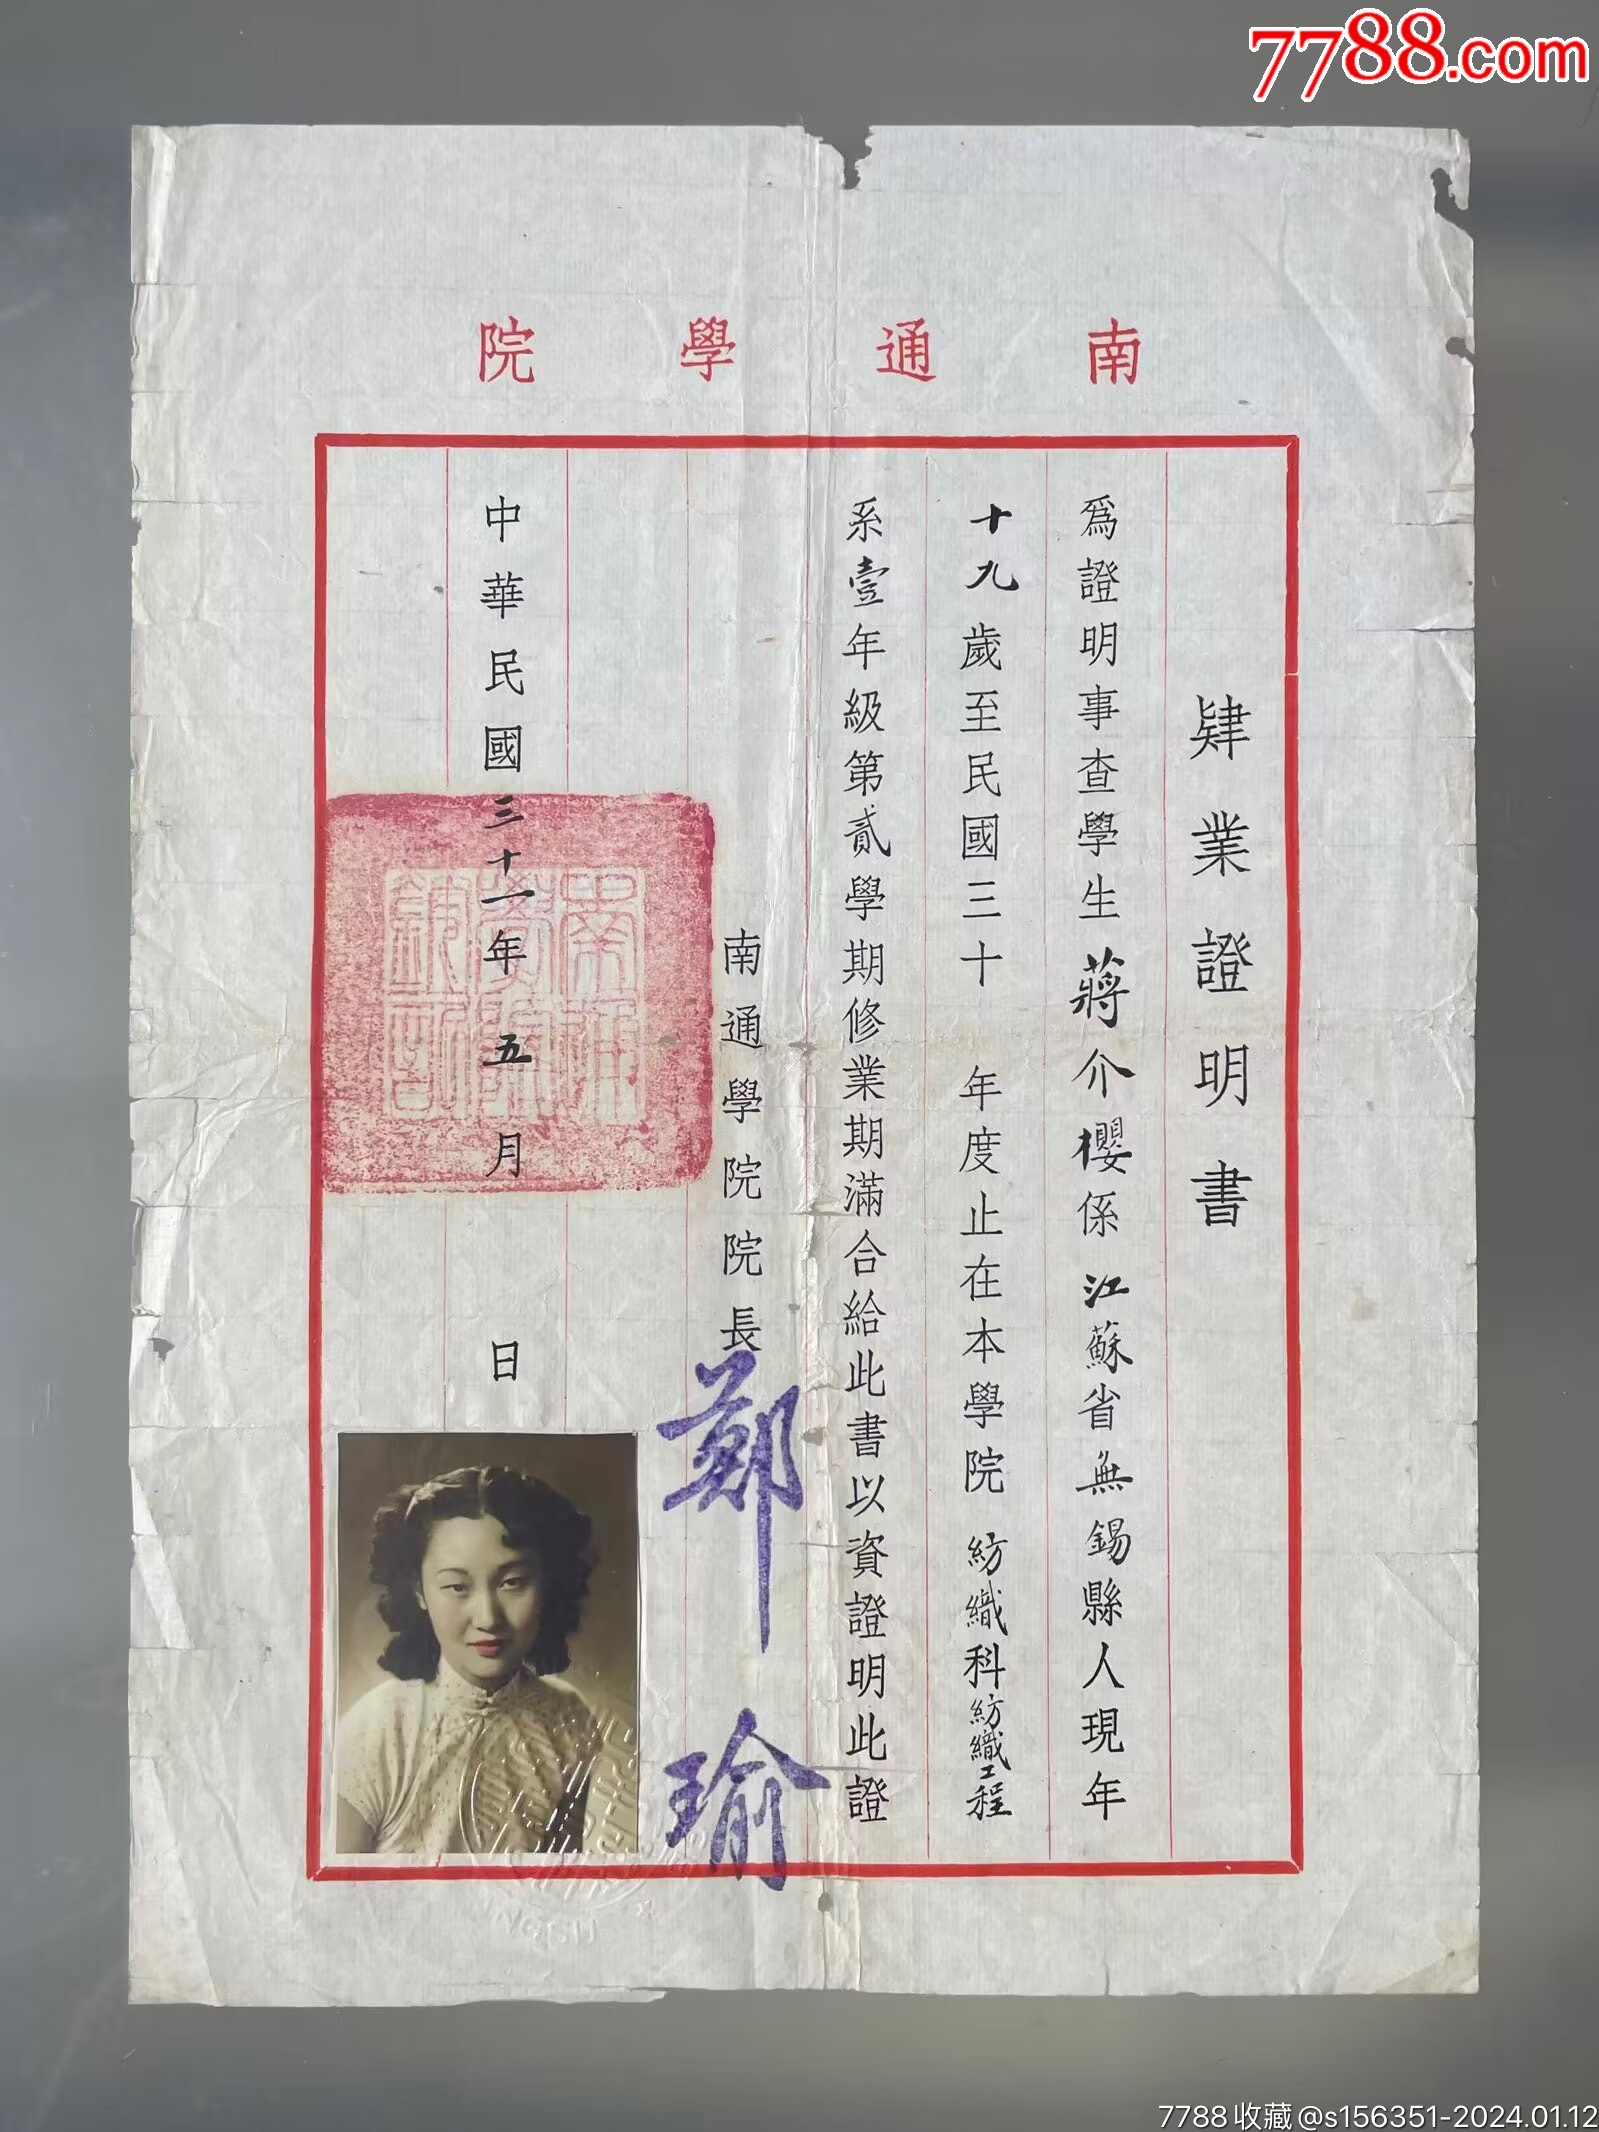 7788.com
南通學院
肄業證明書
爲證明事查學生蔣介櫻係江蘇省無錫縣人現年
十九歲至民國三十年度止在本學院紡織科紡織工程
系壹年級第貳學期修業期滿合給此書以資證明此證
南通學院院長鄭瑜
中華民國三十一年五月日
南通學院鈐記
7788收藏@s156351-2024.01.12